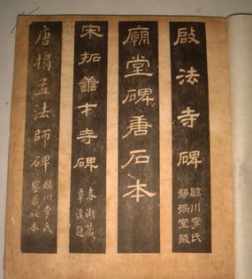 啟法寺碑
臨川李氏
廟堂碑唐石本
宋拓善才寺碑
唐搨孟法師碑
臨川李氏